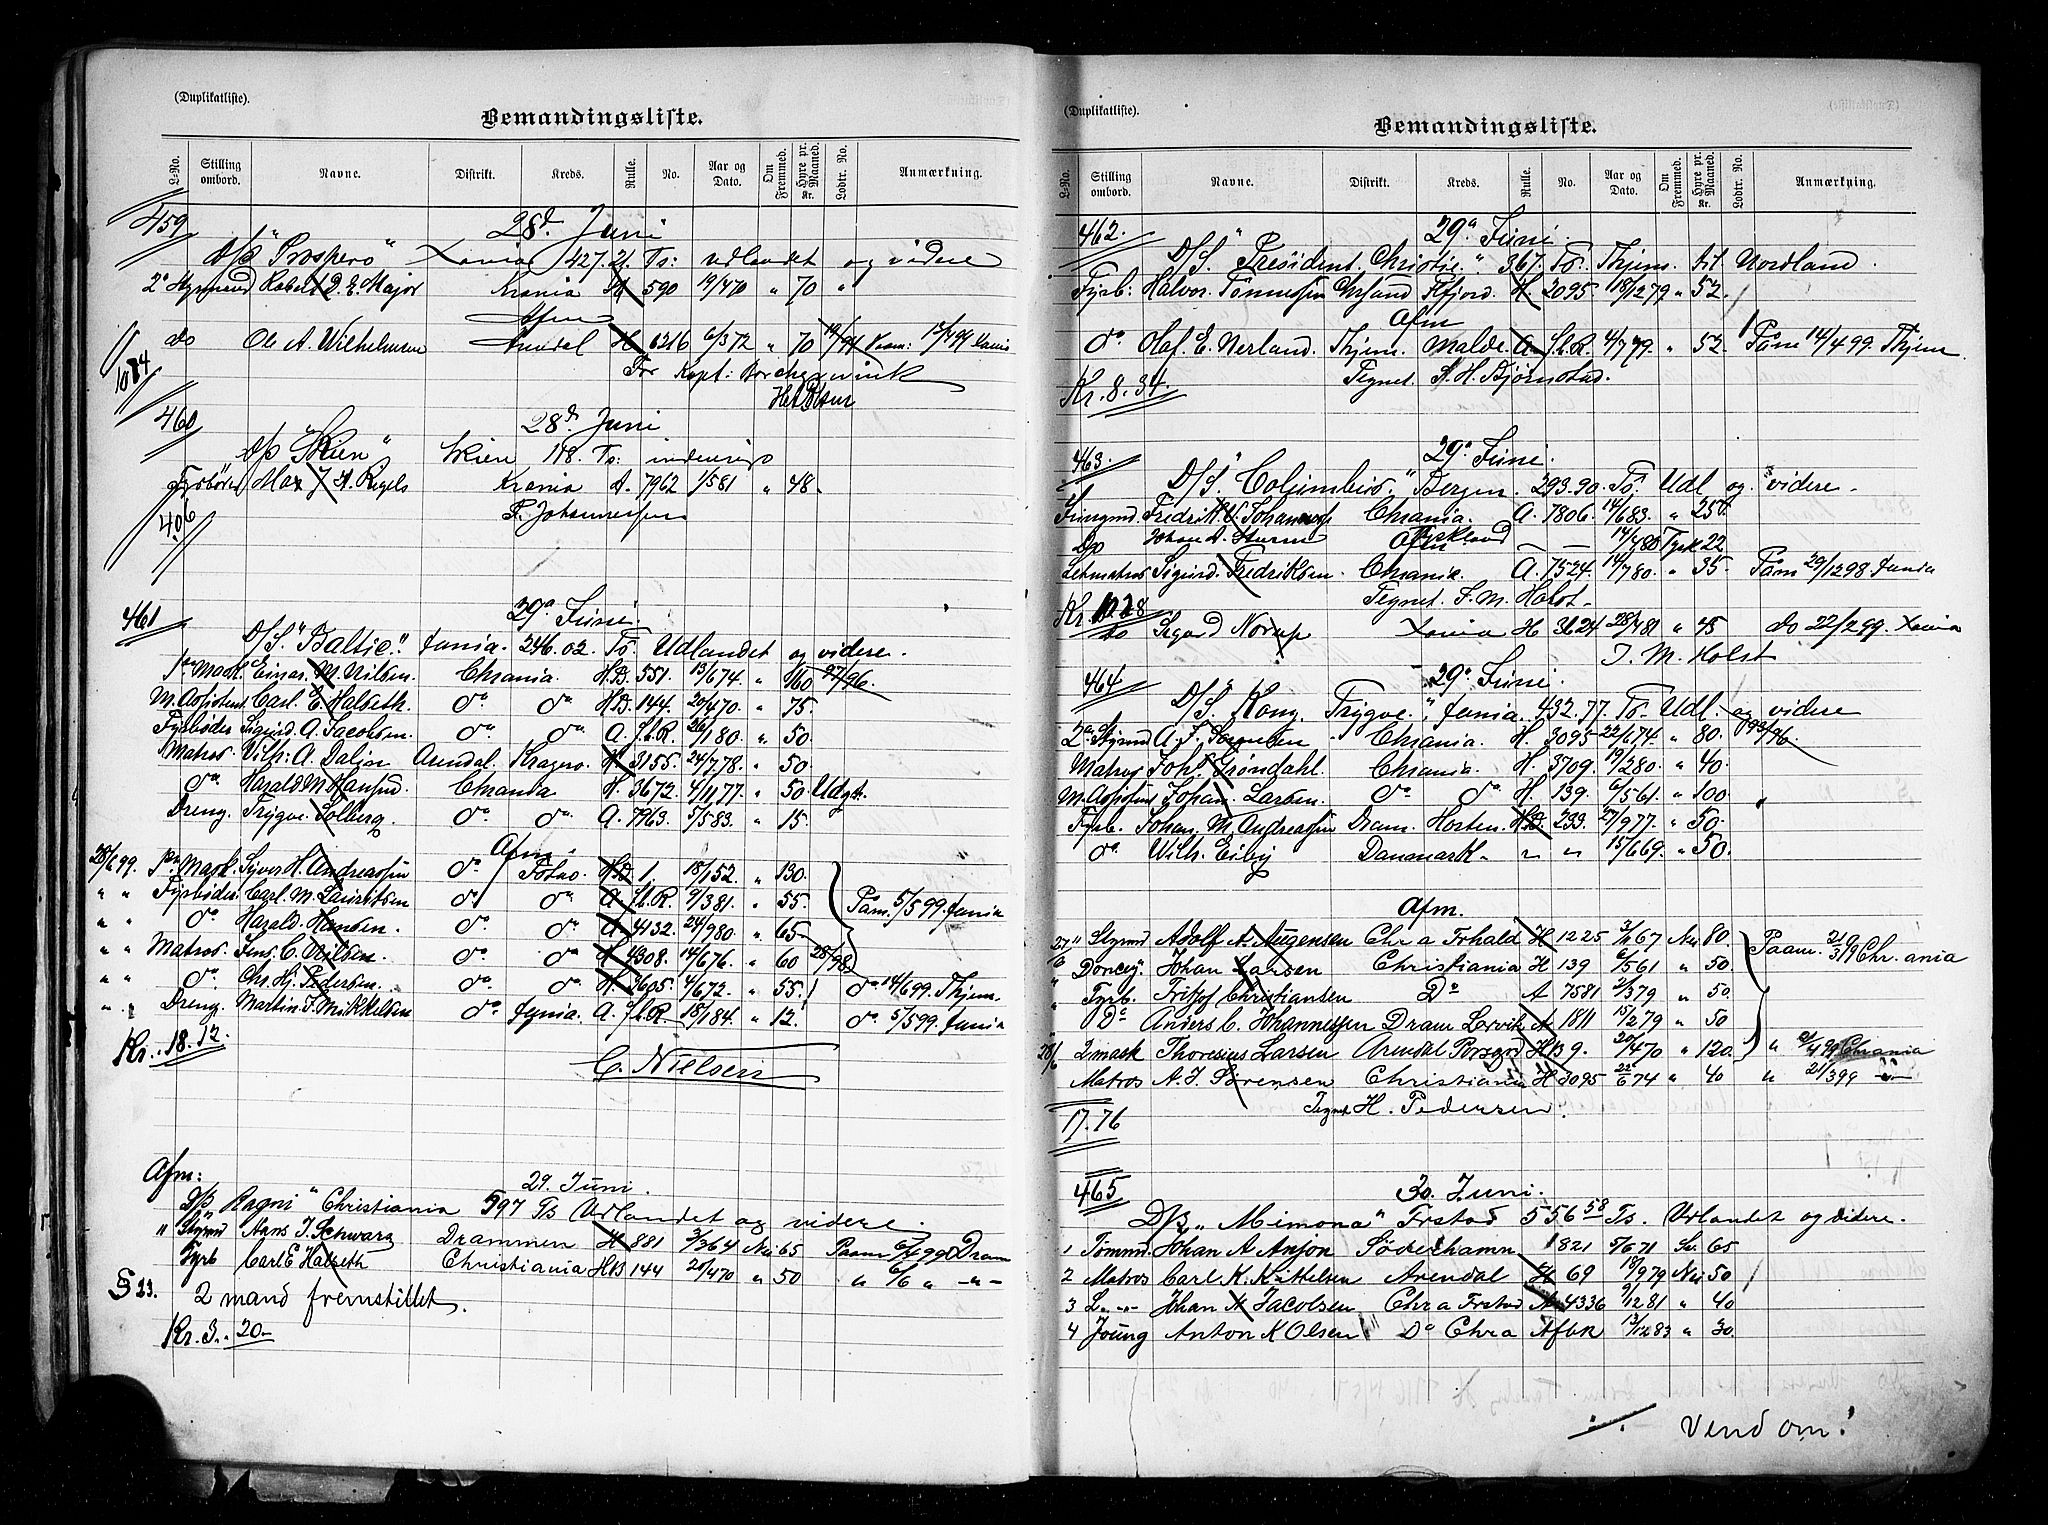 (Duplikatliste).
Bemandingsliste.
L-No. Stilling ombord. Navne. Distrikt. Kreds. Rulle. No. Aar og Dato. Om Fremmed. Hyre pr. Maaned. Kr. Lodtr. No. Anmærkning.
459 28d Juni
D/S "Prospero" Xania 427.21 Ts: udlandet og videre
2' Styrmand Robert D. E. Major Krania H 590 19/4 70 " 70 "
Afm
do Ole A. Wilhelmsen Arendal H 6216 6/3 72 " 70
For Kapt: Borchgrevink
1084
460 28d Juni
D/S "Skien" Skien 178. Ts: indenrigs
Fyrbøder Max J. A. Regels Krania A. 7962 1/5 81 " 48
F. Johannessen
4.06
461 29a Juni.
D/S. "Baltic." Xania. 246.02. To. Udlandet og videre.
1ste Mask. Einar. M. Nilsen. Chrania. H.B. 551. 13/6 74. " 160 27/96.
M. Assistent Carl. E. Halseth. do do H.B. 144. 20/4 70. " 75.
Fyrbøder Sigurd A. Jacobsen. do do A. f.l.R. 26/1 80. " 50.
Matros. Vilh: A. Dalin Arendal. Kragerø. H 3155. 24/7 78. " 50.
do Harald M. Hansen. Chrania H. 3672. 4/11 77. " 50 Udgt.
Dreng. Trygve Solberg. do do A. 7963. 5/5 83. " 15.
Afm.
28/6 99. 1ste Mask. Syver H. Andreassen do Fotso. H.B. 1. 18/1 52. " 130
" " Fyrbøder. Carl. M. Lauritsen do do A. f.l.R. 9/3 81. " 55. Påm. 5/5 99. Xania
" " do Harald. Hansen. do do A 4132. 24/9 80. " 65
" " Matros. Jens. C. Nilsen. do do A 4308. 14/6 76. " 60 28/98
" " do Chr. Hj. Pedersen. do do H. 3605. 4/6 72. " 55. do 14/6 99. Thjem.
" " Dreng. Martin. F. Mikkelsen do Xania. A. f.l.R. 18/1 84. " 12. do 5/5 99. Xania
Kr. 18.12. C. Nielsen
Afm: 29. Juni.
D/S "Ragni" Christiania 597 Ts Udlandet og videre.
" Styrmd Hans J. Schwarz Drammen H 881 3/3 64 Nei 65 Paam 6/4 99 Dram
Fyrb Carl E Halseth Christiania HB 144 20/4 70 " 50 " 6/6 " -"-
§ 23. 2 mand fremstillet.
Kr. 3.. 20-
(Duplikatliste).
Bemandingsliste.
L-No. Stilling ombord. Navne. Distrikt. Kreds. Rulle. No. Aar og Dato. Om Fremmed. Hyre pr. Maaned. Kr. Lodtr. No. Anmærkning.
462. 29a Juni.
D/S. "Præsident. Christie." 367. To. Thjem. til Nordland.
Fyrb: Halvor. Tønnessen Chrsand Flfjord. H. 2095. 18/12 79 " 52.
Afm
do Olaf. E. Nerland. Thjem. Malde. A. f.l.R. 4/7 79. " 52. Påm 14/4 99. Thjem.
Kr. 8.34. Tegnet. S. H. Bjørnstad.
463. 29a Juni.
D/S. "Columbus." Bergen. 293.90. To. Udl og videre.
Fredrik. V. Johannessen Chrania. A. 7806. 14/6 83. " 25.
Do Johan A. Sturm Tyskland — — 14/4 80 Tysk 22
Afm
Letmatros Sigurd. Fredriksen. Chrania. A. 7524. 14/7 80. " 35. Påm 29/12 98. Xania
Tegnet. J. M. Holst.
Kr. 10.28
do Segard Norup Xania H 3624 28/4 81 " 45 do 22/2 99. Xania
J. M. Holst
464 29a Juni.
D/S. "Kong. Trygve.", Xania. 432.77. To. Udl. og videre
2den Styrmd A. J. Sørensen Chrania. H. 3095. 22/6 74. " 80.
Matros Johs. Grøndahl. Chrania. H. 3709. 19/2 80. " 40.
M. Assistent Johan. Larsen. do do H. 139. 6/5 61. " 100
Fyrb. Johan. M. Andreassen Dram. Horten. HB. 233. 27/9 77. " 50.
do Wilh. Eiby Danmark. " " 15/6 69. " 50.
Afm.
27/6 " Styrmd Adolf A. Augensen Chra Frhald H 1225 3/11 67 Nei 80. Paam. 21/3 99 Chr.ania
" Donkey. Johan Larsen Christiania H 139 6/5 61 " 50.
" Fyrb. Fritjof Christiansen Do A 7581 2/3 79 " 50.
" Do Anders C. Johannessen Dram Larvik A 1811 15/2 79 " 50
28/6 2 mask Thoresius Larsen Arendal Porsgrd HB 9. 20/4 70 " 120. " 4/4 99 Chrania
Matros A. J. Sørensen Christiania H 3095 22/6 74 " 40 " 21/3 99 -"-
Tegnet H. Pedersen.
17.76
465 30. Juni.
D/S. "Mimona" Frstad 556 58 Ts. Udlandet og videre.
1 Tømmd Johan A Anjon Söderhamn 1821 5/6 71 Sv. 65
2 Matros Carl K. Kittelsen Arendal H 69 18/9 79 Nei 50
3 L. -"- Johan A Jacobsen Chra Frstad A 4336 9/12 81 " 40
4 Joung Anton K Olsen Do Chra Afbk 13/12 83 " 30.
Vend om!